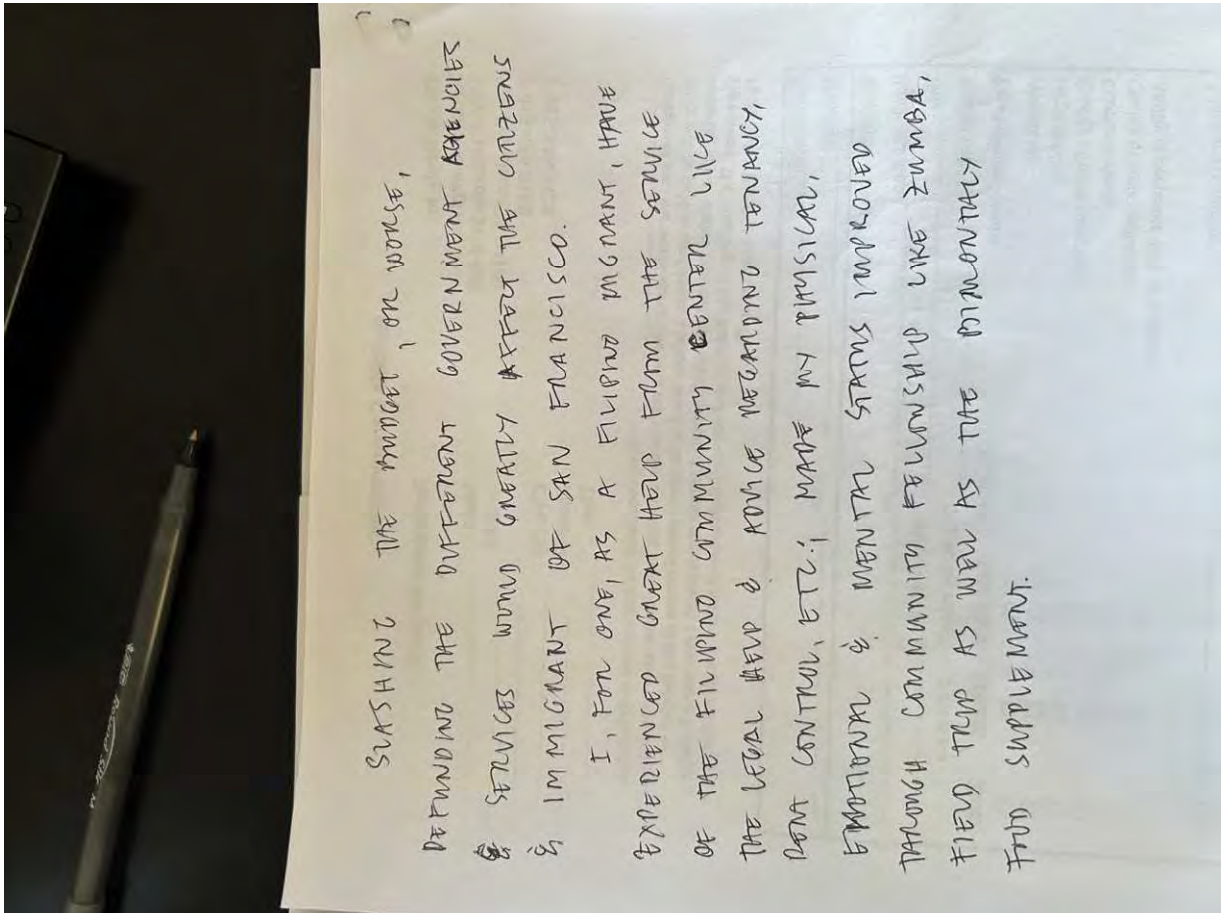 SLASHING THE BUDGET, OR WORSE,
DEFUNDING THE DIFFERENT GOVERNMENT AGENCIES
& SERVICES WILL GREATLY AFFECT THE CITIZENS
& IMMIGRANT OF SAN FRANCISCO.
I, FOR ONE, AS A FILIPINO MIGRANT, HAVE
EXPERIENCED GREAT HELP FROM THE SERVICES
OF THE FILIPINO COMMUNITY CENTER LIKE
THE LEGAL HELP & ADVICE REGARDING TENANCY,
RENT CONTROL, ETC.! MADE MY PHYSICAL,
EMOTIONAL & MENTAL STATUS IMPROVED
THROUGH COMMUNITY FELLOWSHIP LIKE ZUMBA,
FIELD TRIP AS WELL AS THE BIMONTHLY
FOOD SUPPLEMENT.